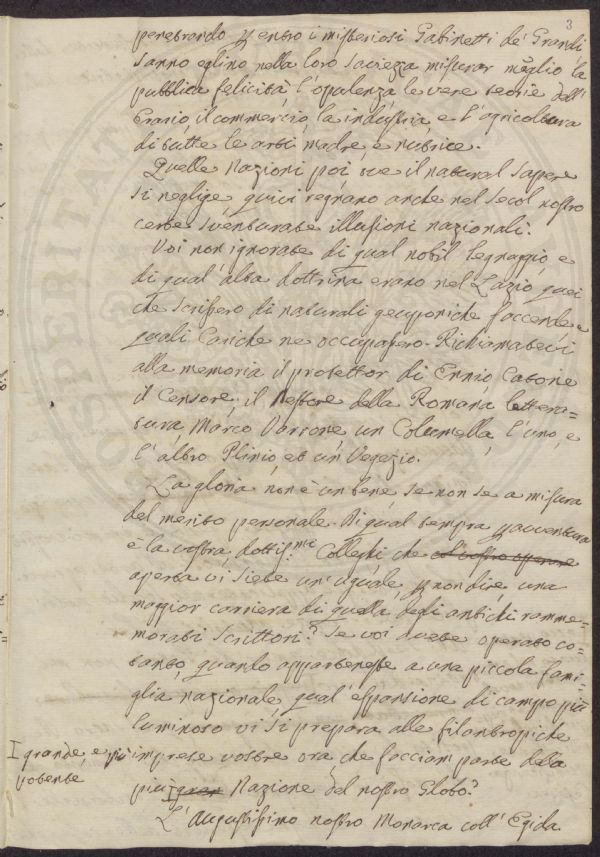 3
penetrando per entro i misteriosi Gabinetti de' Grandi
sanno eglino nella loro saviezza misurar meglio la
pubblica felicità l'opulenza le vere teorie dell'
Erario, il commercio, la industria, e l'agricoltura
di tutte le arti madre, e nutrice.
Quelle Nazioni poi, ove il natural sapere
si neglige quivi regnano anche nel secol nostro
certe sventurate illusioni nazionali.
Voi non ignorate di qual nobil legnaggio, e
di qual' alta dottrina erano nel Lazio quei
che scrissero di naturali geoponiche faccende, e
quali Cariche ne occupassero. Richiamatevi
alla memoria il protettor di Ennio Catone
il Censore, il Nestore della Romana lettera-
tura Marco Varrone un Columella, l'uno, e
l'altro Plinio, et un Vegezio.
La gloria non è un bene, se non se a misura
del merito personale. Di qual tempra per avventura
è la vostra, dottiss.mi Colleghi che al vostro operare
aperta vi siete un' uguale per non dire una
maggior carriera di quella degli antichi ramme-
morati scrittori? Se voi avete operato co-
tanto, quando apparteneste a una piccola fami-
glia nazionale qual' espansione di campo più
luminoso vi si prepara alle filantropiche
imprese vostre ora che facciam parte della
I grande, e più
potente
più I gran Nazione del nostro Globo?
L'Augustissimo nostro Monarca coll' Egida